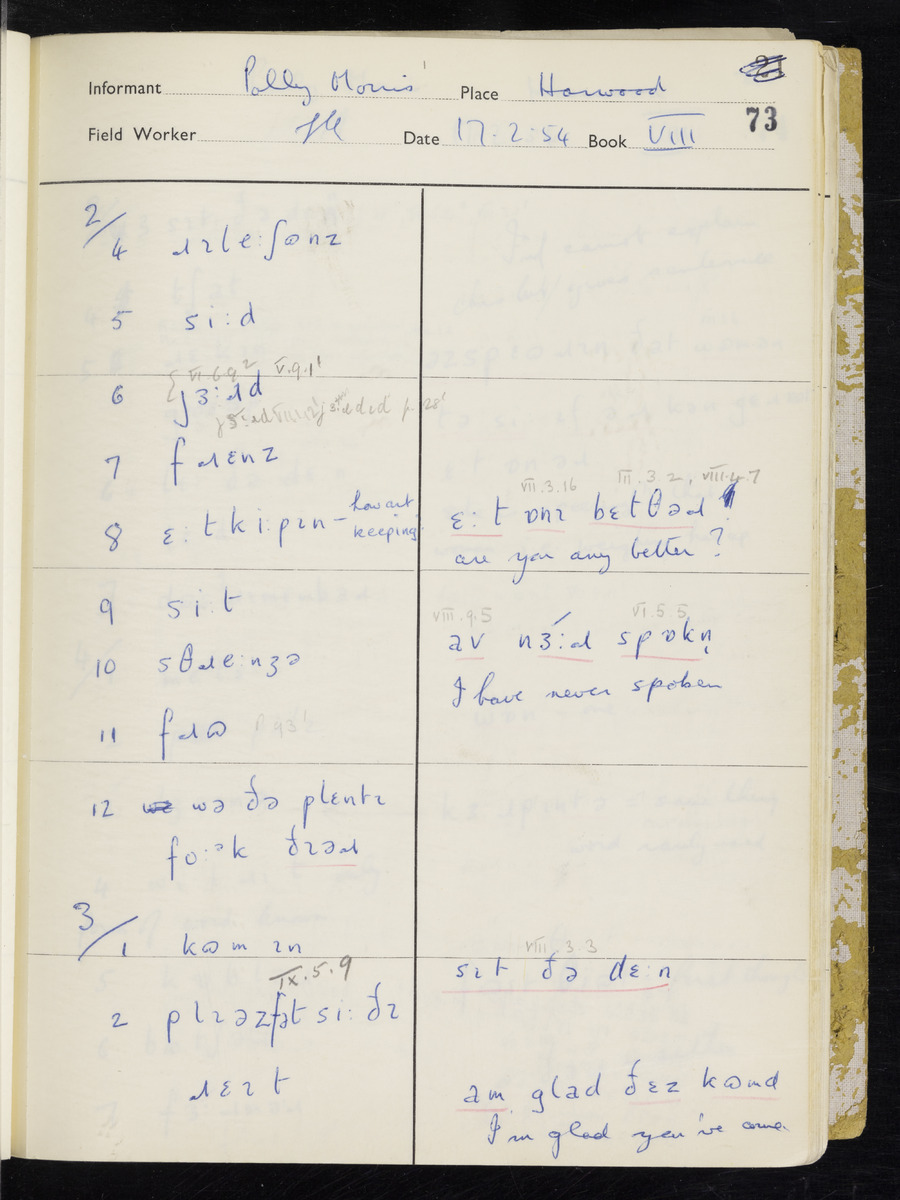 Informant Polly Morris Place Harwood
73
Field Worker Date 17.2.54 Book VIII
2/4 ɹɪleːʃɷnz
5 siːd
VI.6.9² V.9.1¹
6 jɜːɹd
7 fɹɛnz
VII.3.16 III.3.2, VIII.4.7
8 ɛːt kiːpɪn – how art keeping
ɛːt ɒnɪ bɛtθəɹ?
are you any better?
9 siːt
VIII.9.5 VI.5.5
av nɜːɹ spɒkn̩
10 sθɹeːnʒə
I have never spoken
11 fɹɷ p 93¹
12 wə ðə plɛntɪ
foːᵊk ðɪəɹ
3/1 kɷm ɪn
VIII.3.3
sɪt ðə dɛːn
IX.5.9
2 plɪəzfət siː ðɪ
ɹɛɪt
am glad ðɛz kɷmd
I'm glad you've come